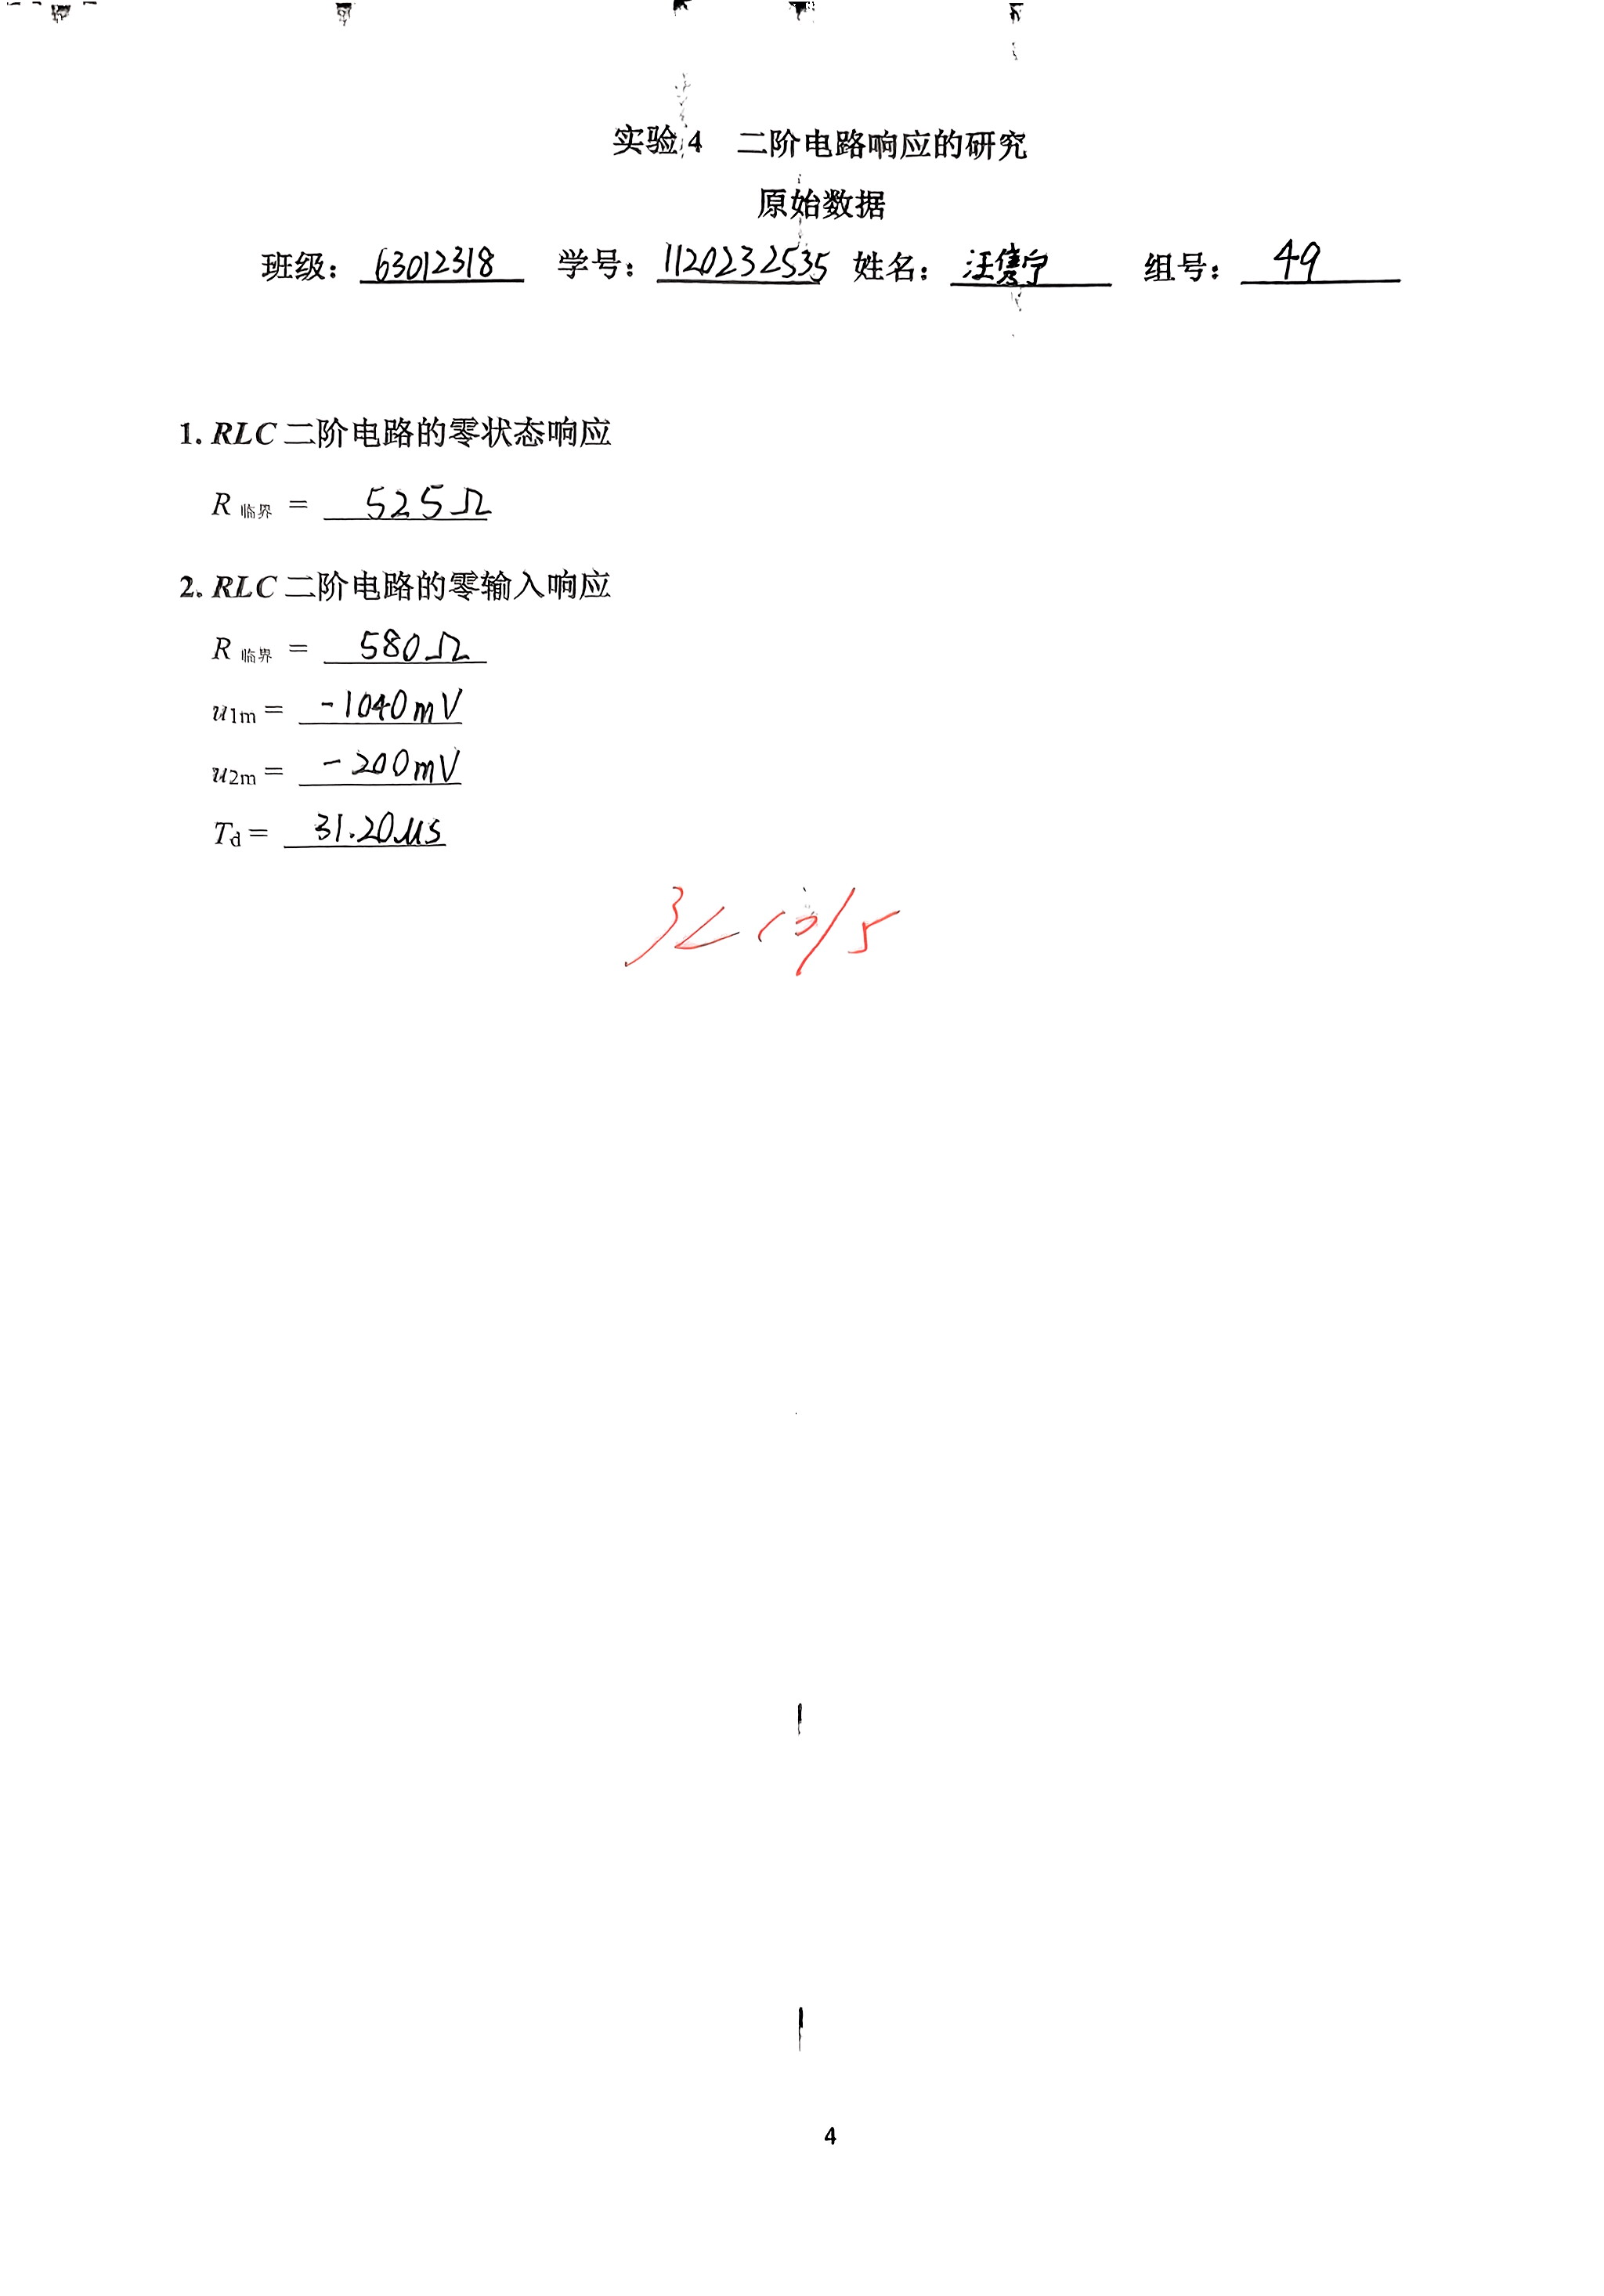 实验 4 二阶电路响应的研究
原始数据
班级: 63012318 学号: 1120232535 姓名: 汪隽宁 组号: 49
1. RLC 二阶电路的零状态响应
R 临界 = 525Ω
2. RLC 二阶电路的零输入响应
R 临界 = 580Ω
u1m = -1040mV
u2m = -200mV
Td = 31.20μs
4